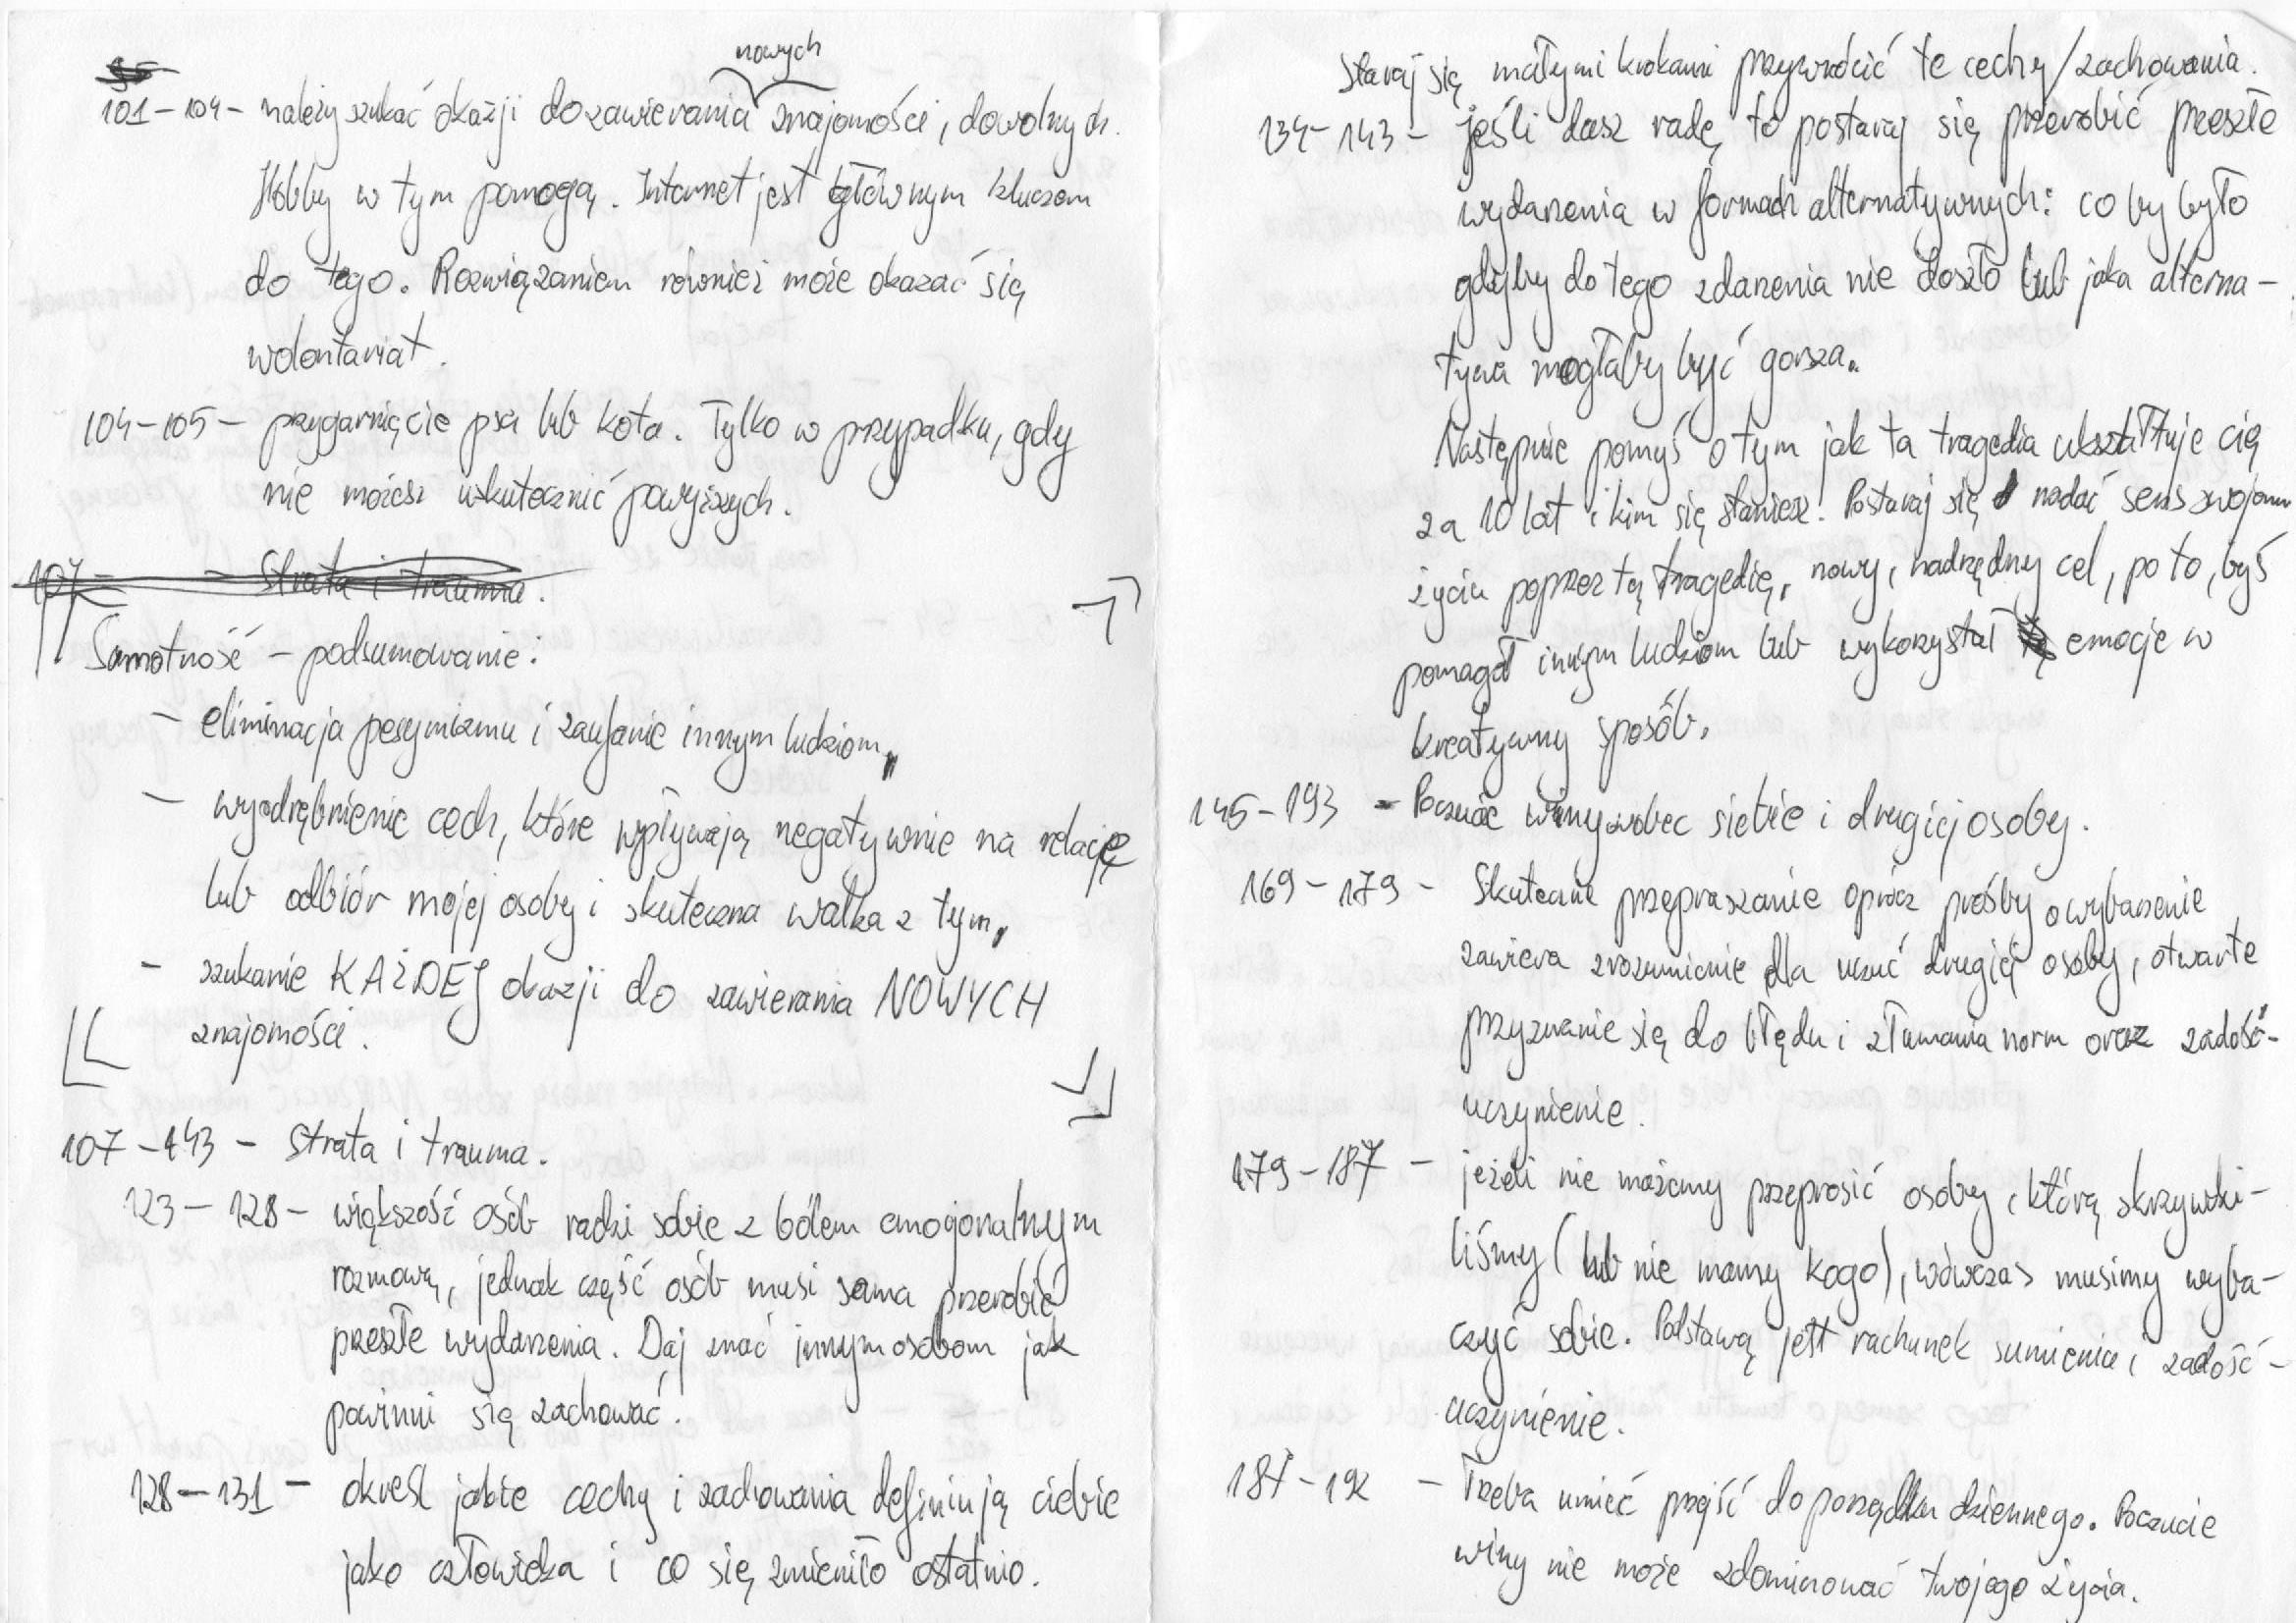 nowych
101-104 - należy szukać okazji do zawierania znajomości, dowolnych.
Hobby w tym pomogą. Internet jest głównym kluczem
do tego. Rozwiązaniem również może okazać się
wolontariat.
104-105 - przygarnięcie psa lub kota. Tylko w przypadku, gdy
nie możesz uskutecznić powyższych.
107 - - Strata i trauma.
Samotność - podsumowanie:
- eliminacja pesymizmu i zaufanie innym ludziom,
- wyodrębnienie cech, które wpływają negatywnie na relację
lub odbiór mojej osoby i skuteczna walka z tym,
- szukanie KAŻDEJ okazji do zawierania NOWYCH
znajomości.
107-143 - Strata i trauma.
123-128 - większość osób radzi sobie z bólem emocjonalnym
rozmową, jednak część osób musi sama przerobić
przeszłe wydarzenia. Daj znać innym osobom jak
powinni się zachować.
128-131 - określ jakie cechy i zachowania definiują ciebie
jako człowieka i co się zmieniło ostatnio.
Staraj się małymi krokami przywrócić te cechy/zachowania.
134-143 - jeśli dasz radę, to postaraj się przerobić przeszłe
wydarzenia w formach alternatywnych: co by było
gdyby do tego zdarzenia nie doszło lub jaka alterna-
tywa mogłaby być gorsza.
Następnie pomyś o tym jak ta tragedia ukształtuje cię
za 10 lat i kim się staniesz. Postaraj się nadać sens swojemu
życiu poprzez tą tragedię, nowy, nadrzędny cel, po to, byś
pomagał innym ludziom lub wykorzystał emocje w
kreatywny sposób.
145-193 - Poczucie winy wobec siebie i drugiej osoby.
169-179 - Skuteczne przepraszanie oprócz prośby o wybaczenie
zawiera zrozumienie dla uczuć drugiej osoby, otwarte
przyznanie się do błędu i złamania norm oraz zadość-
uczynienie.
179-187 - jeżeli nie możemy przeprosić osoby, którą skrzywdzi-
liśmy (lub nie mamy kogo), wówczas musimy wyba-
czyć sobie. Podstawą jest rachunek sumienia i zadość-
uczynienie.
187-192 - Trzeba umieć przejść do porządku dziennego. Poczucie
winy nie może zdominować twojego życia.